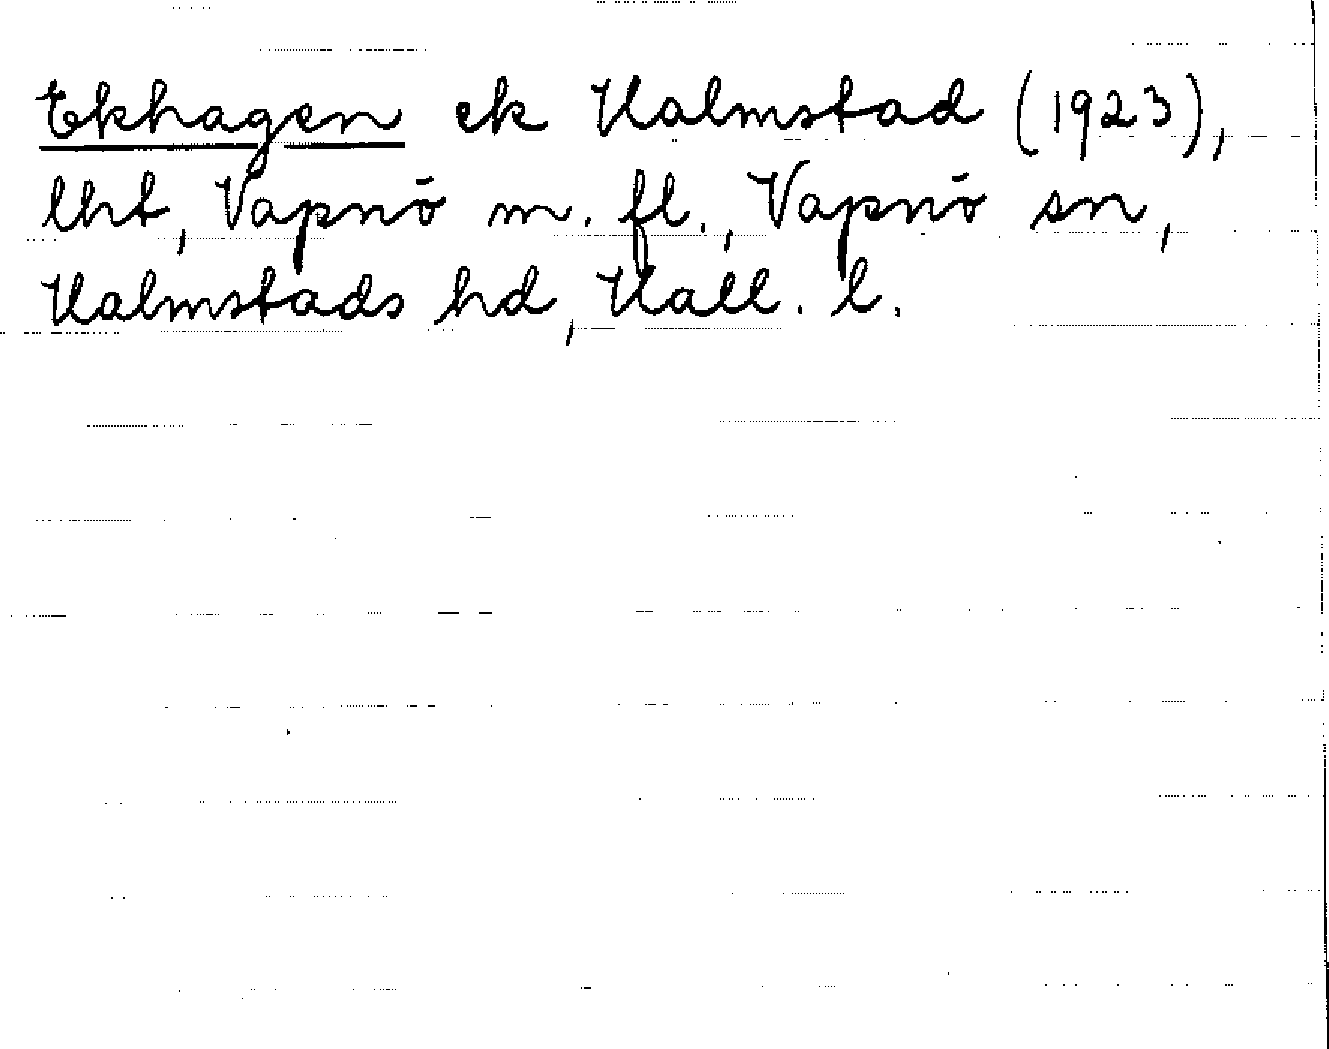 Ekhagen ek Halmstad (1923),
lht, Vapnö m. fl., Vapnö sn,
Halmstads hd, Hall. l.